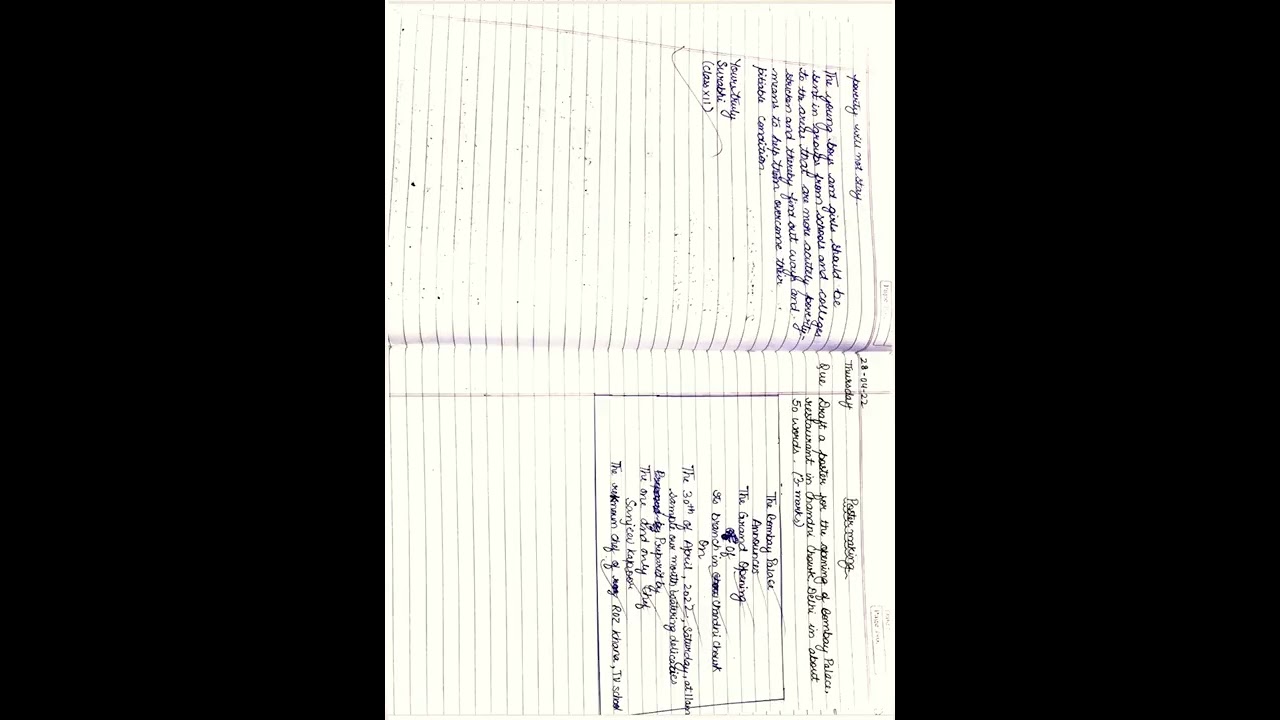 poverty will not stay.
The young boys and girls should be
sent in groups from schools and colleges
to the areas that are more acutely poverty-
stricken and thereby find out ways and
means to help them overcome their
pitiable condition.
Yours truly
Surabhi
(Class XII)
28-04-22
Thursday
Poster making
Que Draft a poster for the opening of Bombay Palace,
restaurant in Chandni Chowk Delhi in about
50 words. (3 marks)
The Bombay Palace
Announces
The Grand Opening
Of
Its branch in Chandni Chowk
On
The 30th of April, 2022, Saturday, at 11am
Sample our mouth watering delicacies
Prepared by
The one and only Chef
Sanjeev Kapoor
The renown chef of Roz Khana, TV